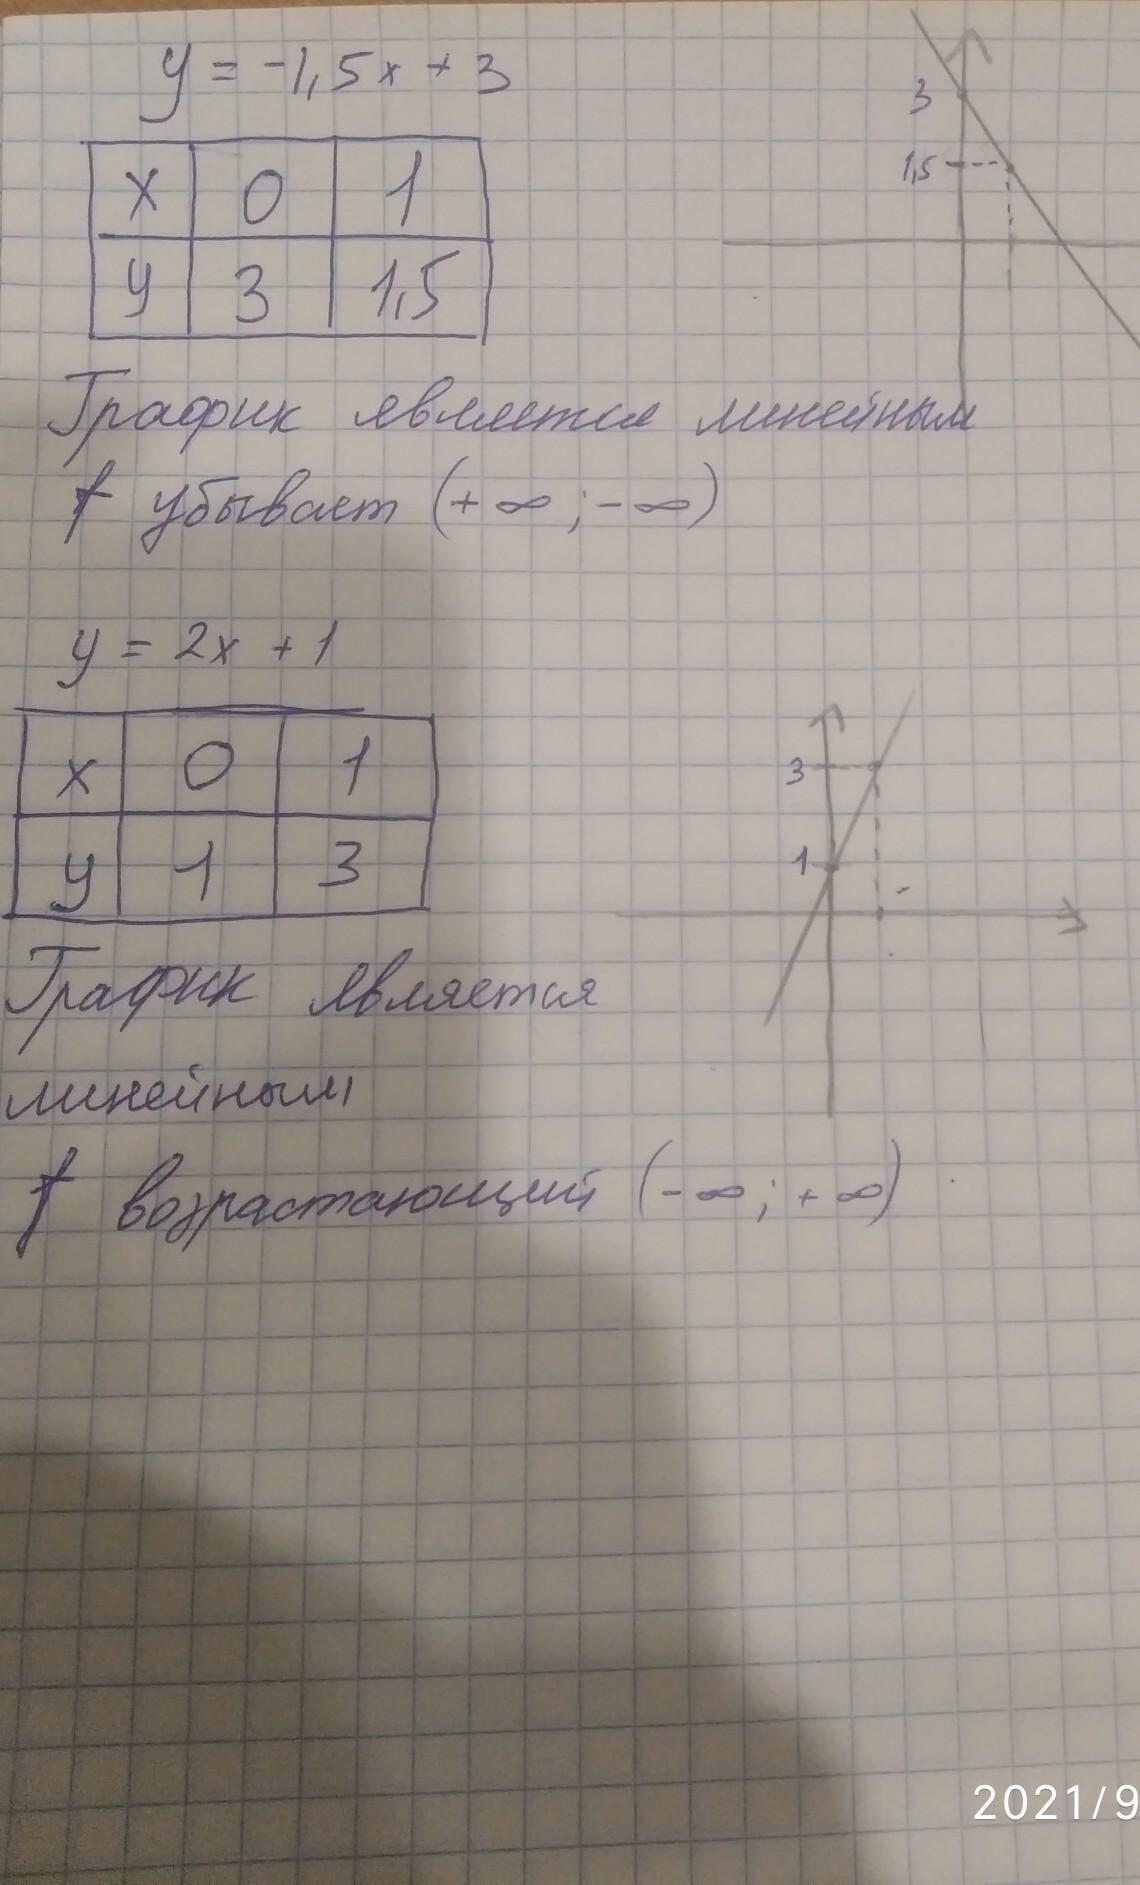 y = -1,5x + 3
3
1,5
x 0 1
y 3 1,5
График является линейным
f убывает (+∞; -∞)
y = 2x + 1
x 0 1
y 1 3
3
1
График является
линейным
f возрастающий (-∞; +∞)
2021/9